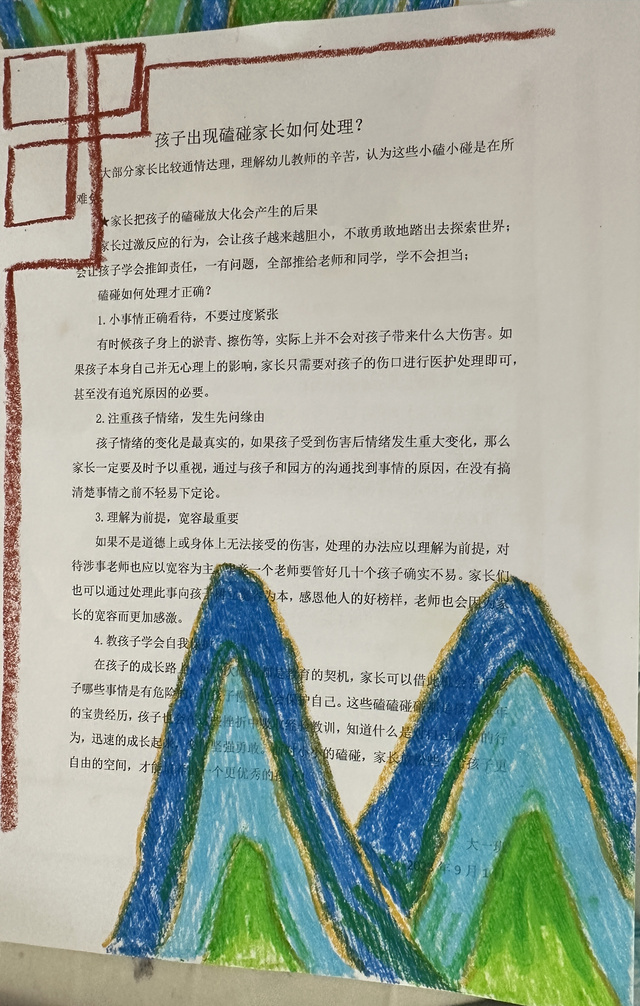 孩子出现磕碰家长如何处理？
大部分家长比较通情达理，理解幼儿教师的辛苦，认为这些小磕小碰是在所
难免
★家长把孩子的磕碰放大化会产生的后果
家长过激反应的行为，会让孩子越来越胆小，不敢勇敢地踏出去探索世界；
会让孩子学会推卸责任，一有问题，全部推给老师和同学，学不会担当；
磕碰如何处理才正确？
1.小事情正确看待，不要过度紧张
有时候孩子身上的淤青、擦伤等，实际上并不会对孩子带来什么大伤害。如
果孩子本身自己并无心理上的影响，家长只需要对孩子的伤口进行医护处理即可，
甚至没有追究原因的必要。
2.注重孩子情绪，发生先问缘由
孩子情绪的变化是最真实的，如果孩子受到伤害后情绪发生重大变化，那么
家长一定要及时予以重视，通过与孩子和园方的沟通找到事情的原因，在没有搞
清楚事情之前不轻易下定论。
3.理解为前提，宽容最重要
如果不是道德上或身体上无法接受的伤害，处理的办法应以理解为前提，对
待涉事老师也应以宽容为主，毕竟一个老师要管好几十个孩子确实不易。家长们
也可以通过处理此事向孩子 为本，感恩他人的好榜样，老师也会因为家
长的宽容而更加感激。
4.教孩子学会自我保护
在孩子的成长路 教育的契机，家长可以借此
子哪些事情是有危险的， 保护自己。这些磕磕碰碰
的宝贵经历，孩子也 挫折中 教训，知道什么是 的行
为，迅速的成长起 坚强勇敢。 小小的磕碰，家长 孩子更
自由的空间，才能 一个更优秀的
大一班
年9月1